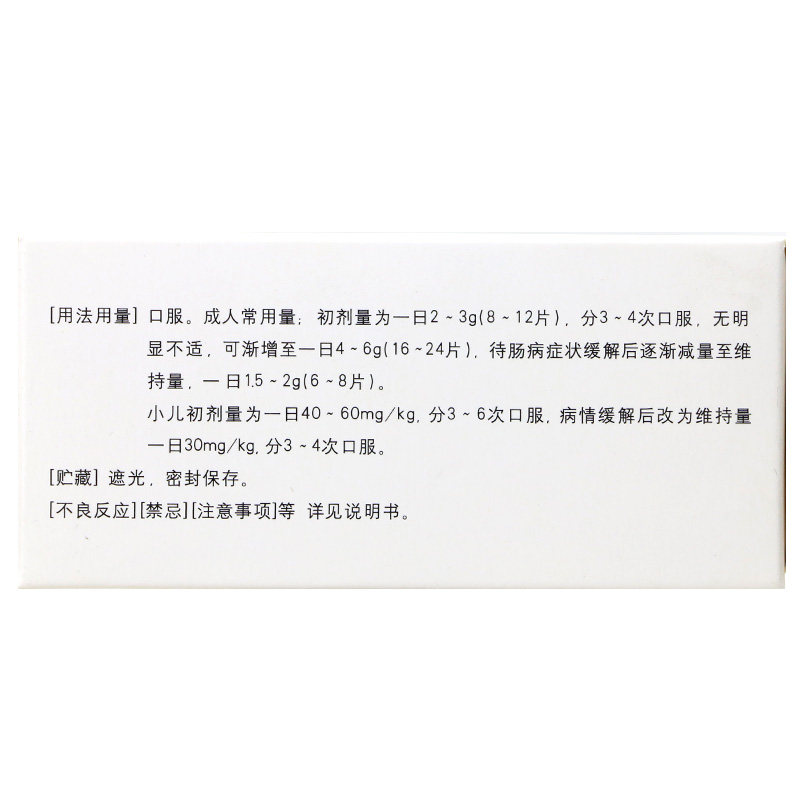 [用法用量] 口服。成人常用量：初剂量为一日2~3g(8~12片)，分3~4次口服，无明
显不适，可渐增至一日4~6g(16~24片)，待肠病症状缓解后逐渐减量至维
持量，一日1.5~2g(6~8片)。
小儿初剂量为一日40~60mg/kg, 分3~6次口服, 病情缓解后改为维持量
一日30mg/kg, 分3~4次口服。
[贮藏] 遮光，密封保存。
[不良反应][禁忌][注意事项]等 详见说明书。